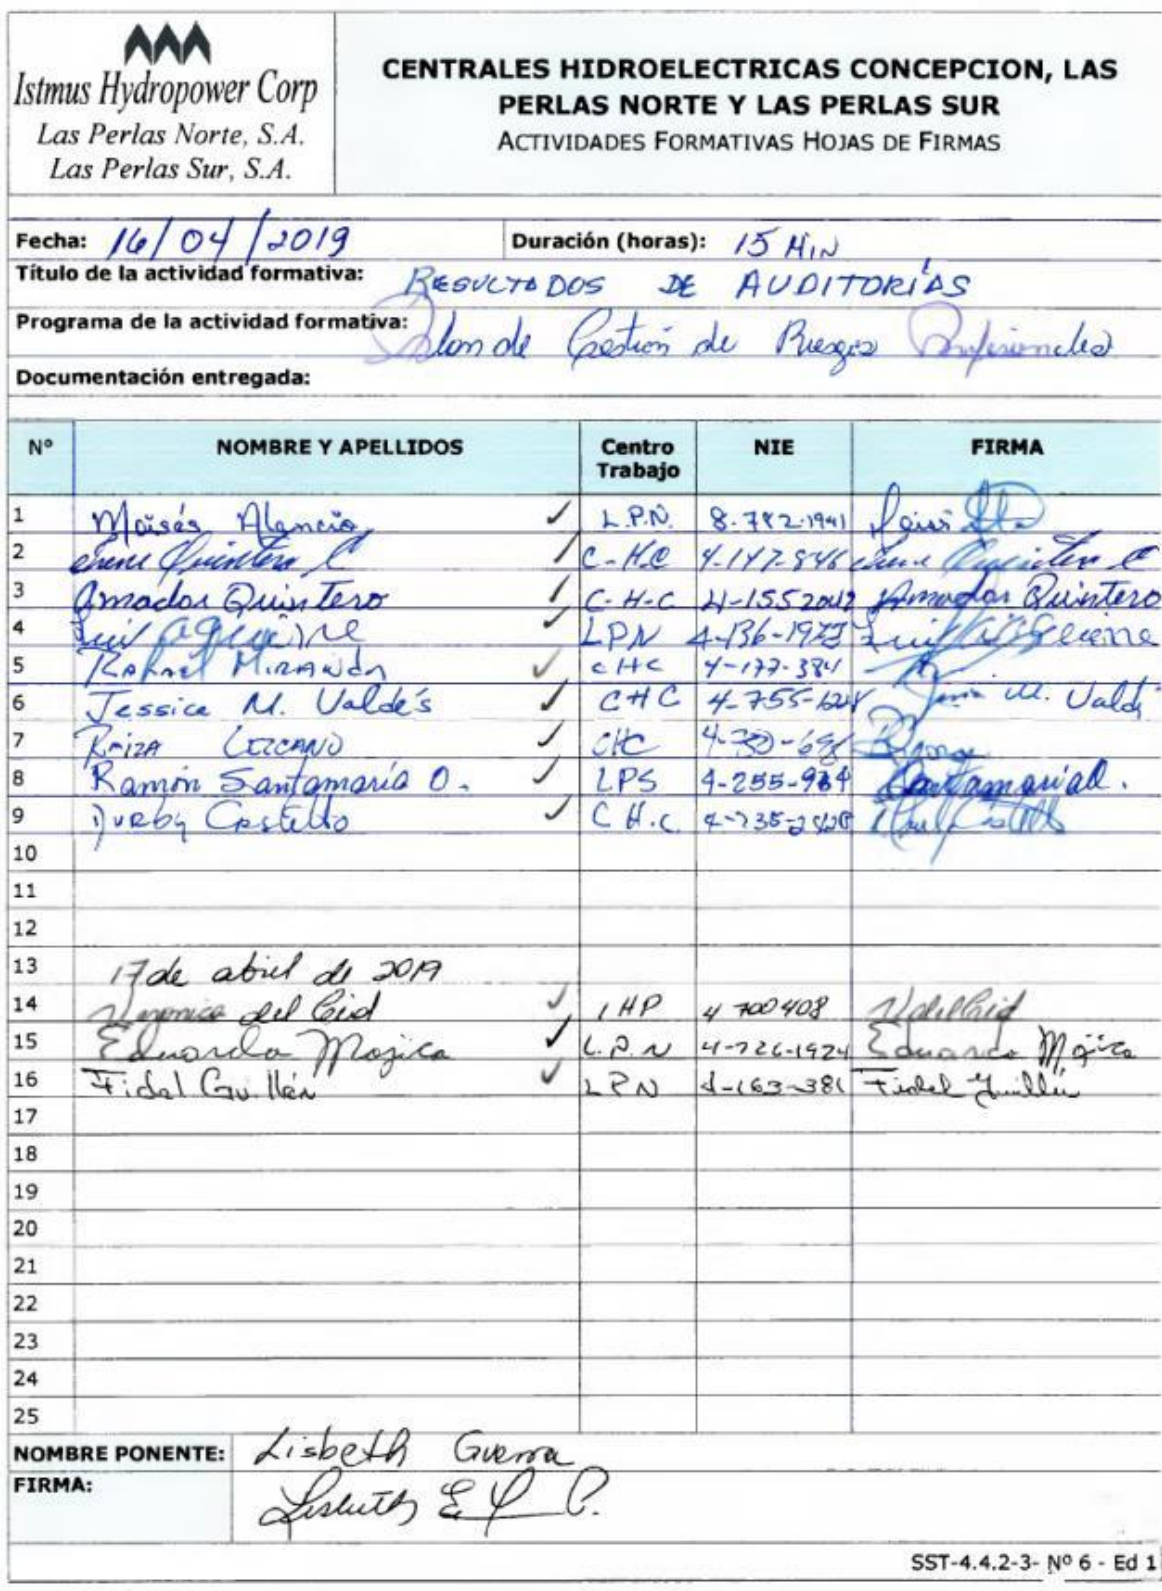 Istmus Hydropower Corp
Las Perlas Norte, S.A.
Las Perlas Sur, S.A.
CENTRALES HIDROELECTRICAS CONCEPCION, LAS
PERLAS NORTE Y LAS PERLAS SUR
ACTIVIDADES FORMATIVAS HOJAS DE FIRMAS
Fecha: 16/04/2019 Duración (horas): 15 MIN
Título de la actividad formativa: RESULTADOS DE AUDITORÍAS
Programa de la actividad formativa: Plan de Gestión de Riesgos Profesionales
Documentación entregada:
Nº NOMBRE Y APELLIDOS Centro Trabajo NIE FIRMA
1 Moisés ✓ L.P.N. 8-782-1941
2 Irene Quintero C ✓ C-H.C 4-147-846 Irene Quintero C
3 Amador Quintero ✓ C-H-C 4-155 2042 Amador Quintero
4 Luis Aguirre ✓ LPN 4-136-1973 Luis Aguirre
5 Rafael MIRANDA ✓ CHC 4-177-384
6 Jessica M. Valdés ✓ CHC 4-755- M. Valdés
7 RAIZA LEZCANO ✓ CHC
8 Ramón Santamaría O. ✓ LPS 4-255-964 Santamaría O.
9 Castillo ✓ C H.C 4-735-2420
10
11
12
13 17 de abril de 2019
14 Veronica del Cid ✓ IHP 4 700 408 V del Cid
15 Eduardo Mojica ✓ L.P.N 4-726-1924 Eduardo Mojica
16 Fidel Guillén ✓ LPN 4-163-381 Fidel Guillén
17
18
19
20
21
22
23
24
25
NOMBRE PONENTE: Lisbeth Guerra
FIRMA: Lisbeth E.
SST-4.4.2-3- Nº 6 - Ed 1